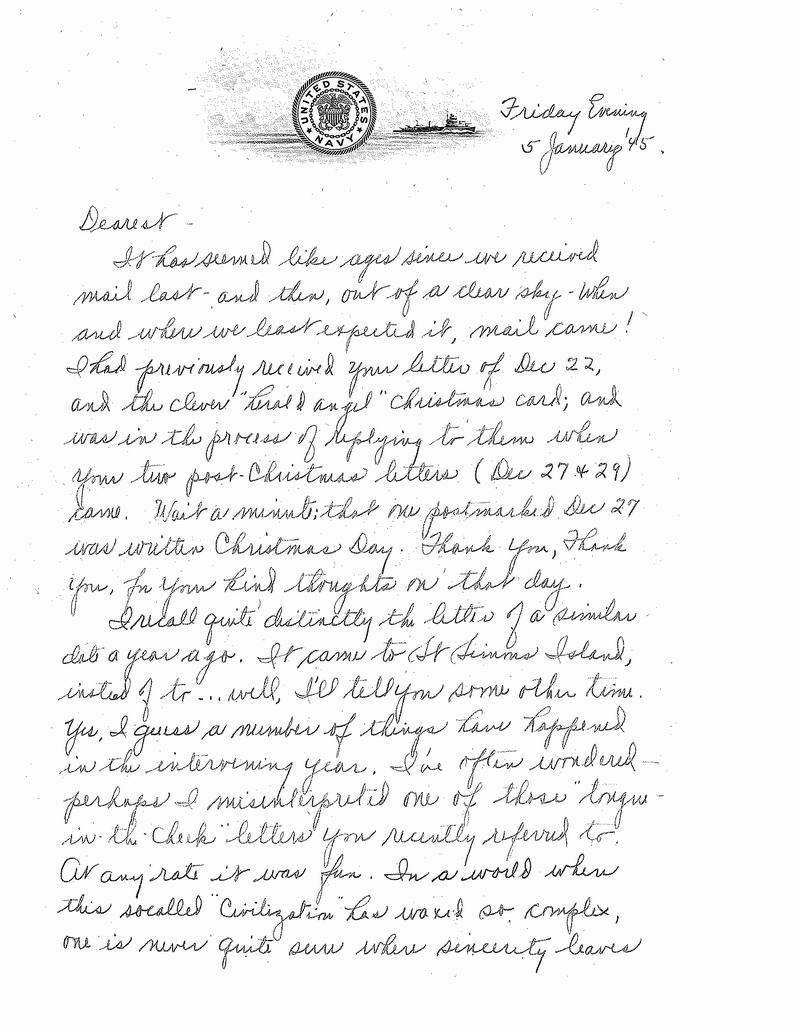 UNITED STATES
NAVY
Friday Evening
5 January '45.
Dearest -
It has seemed like ages since we received
mail last - and then, out of a clear sky - when
and where we least expected it, mail came!
I had previously received your letter of Dec 22,
and the clever "herald angel" Christmas card; and
was in the process of replying to them when
your two post-Christmas letters (Dec 27 & 29)
came. Wait a minute; that one postmarked Dec 27
was written Christmas Day. Thank you, Thank
you, for your kind thoughts on that day.
I recall quite distinctly the letter of a similar
date a year ago. It came to St Simms Island,
instead of to... well, I'll tell you some other time.
Yes, I guess a number of things have happened
in the intervening year. I've often wondered —
perhaps I misinterpreted one of those "tongue-
in-the-cheek" letters you recently referred to.
At any rate it was fun. In a world where
this socalled "Civilization" has waxed so complex,
one is never quite sure where sincerity leaves